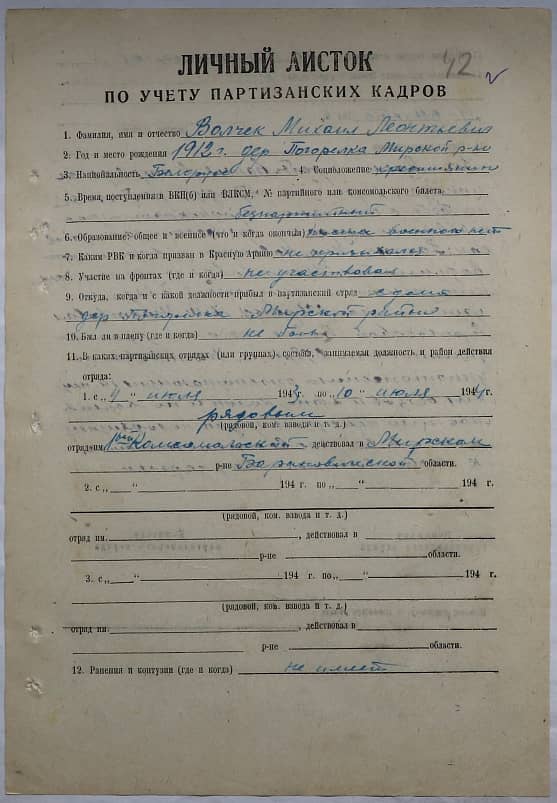 42
ЛИЧНЫЙ ЛИСТОК
ПО УЧЕТУ ПАРТИЗАНСКИХ КАДРОВ
1. Фамилия, имя и отчество Волчек Михаил Леонтьевич
2. Год и место рождения 1912 г. дер Погорелка Мирской р-на
3. Национальность 4. Соцположение крестьянин
5. Время, поступления в ВКП(б) или ВЛКСМ, № партийного или комсомольского билета
беспартийный
6. Образование: общее и военное (что и когда окончил) военного нет
7. Каким РВК и когда призван в Красную Армию не призывался
8. Участие на фронтах (где и когда) не участвовал
9. Откуда, когда и с какой должности прибыл в партизанский отряд с дома
дер Погорелка Мирской район
10. Был ли в плену (где и когда) не был
11. В каких партизанских отрядах (или группах), состоял, занимаемая должность и район действия
отряда:
1. с „4" июля 1943 г. по „10" июля 1944 г.
рядовым
(рядовой, ком. взвода и т. д.)
отряд им. Комсомольский действовал в Мирском
р-не Барановичской области.
2. с „ " 194 г. по „ " 194 г.
(рядовой, ком. взвода и т. д.)
отряд им. , действовал в
р-не области.
3. с „ " 194 г. по „ " 194 г.
(рядовой, ком. взвода и т. д.)
отряд им. , действовал в
р-не области.
12. Ранения и контузии (где и когда) не имеет